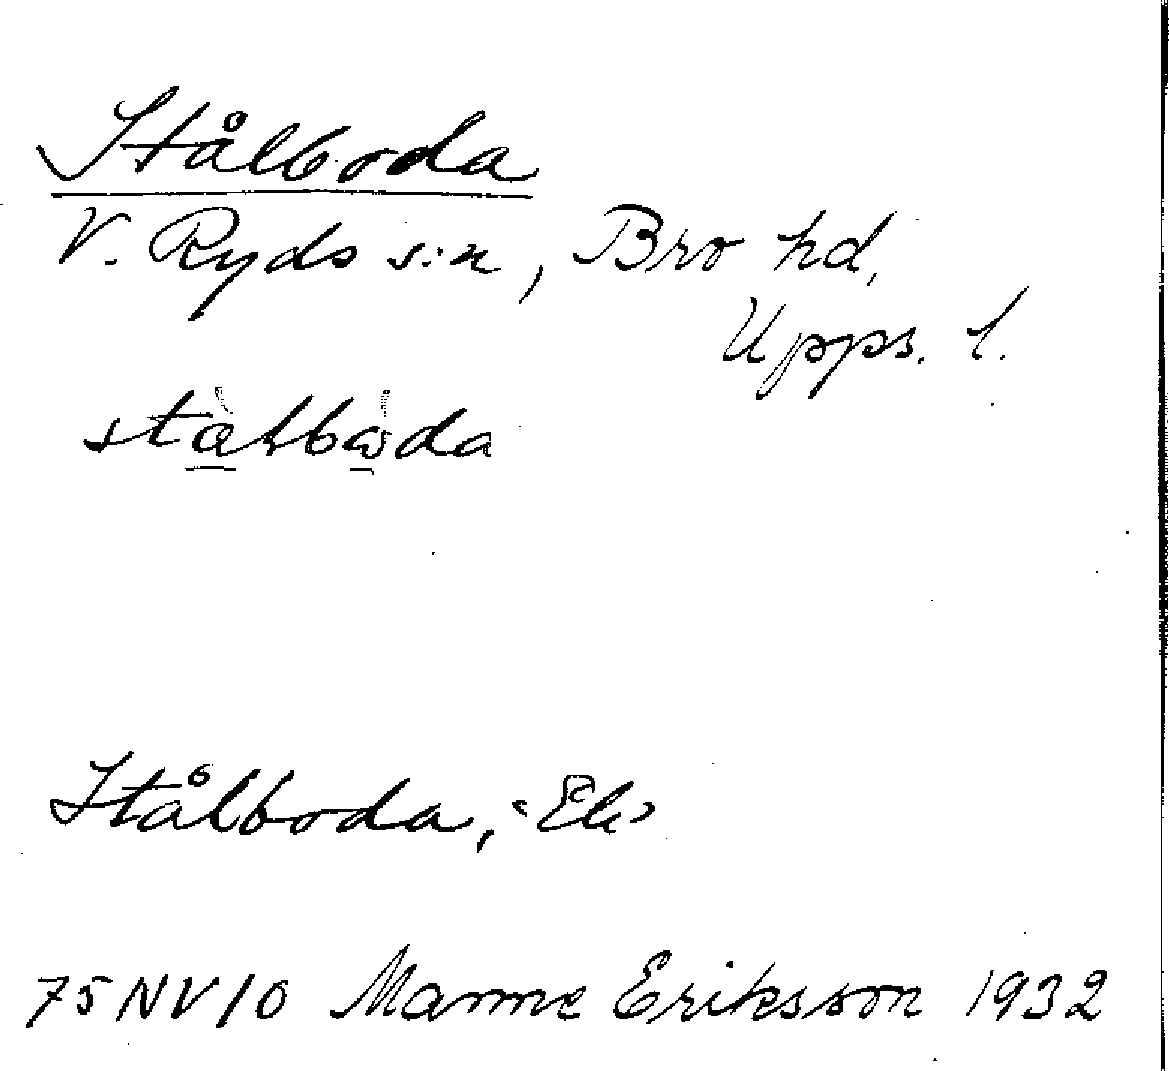 Stålboda
V. Ryds s:n, Bro hd,
Upps. l.
Stålboda, "Ek"
75 NV 10 Manne Eriksson 1932